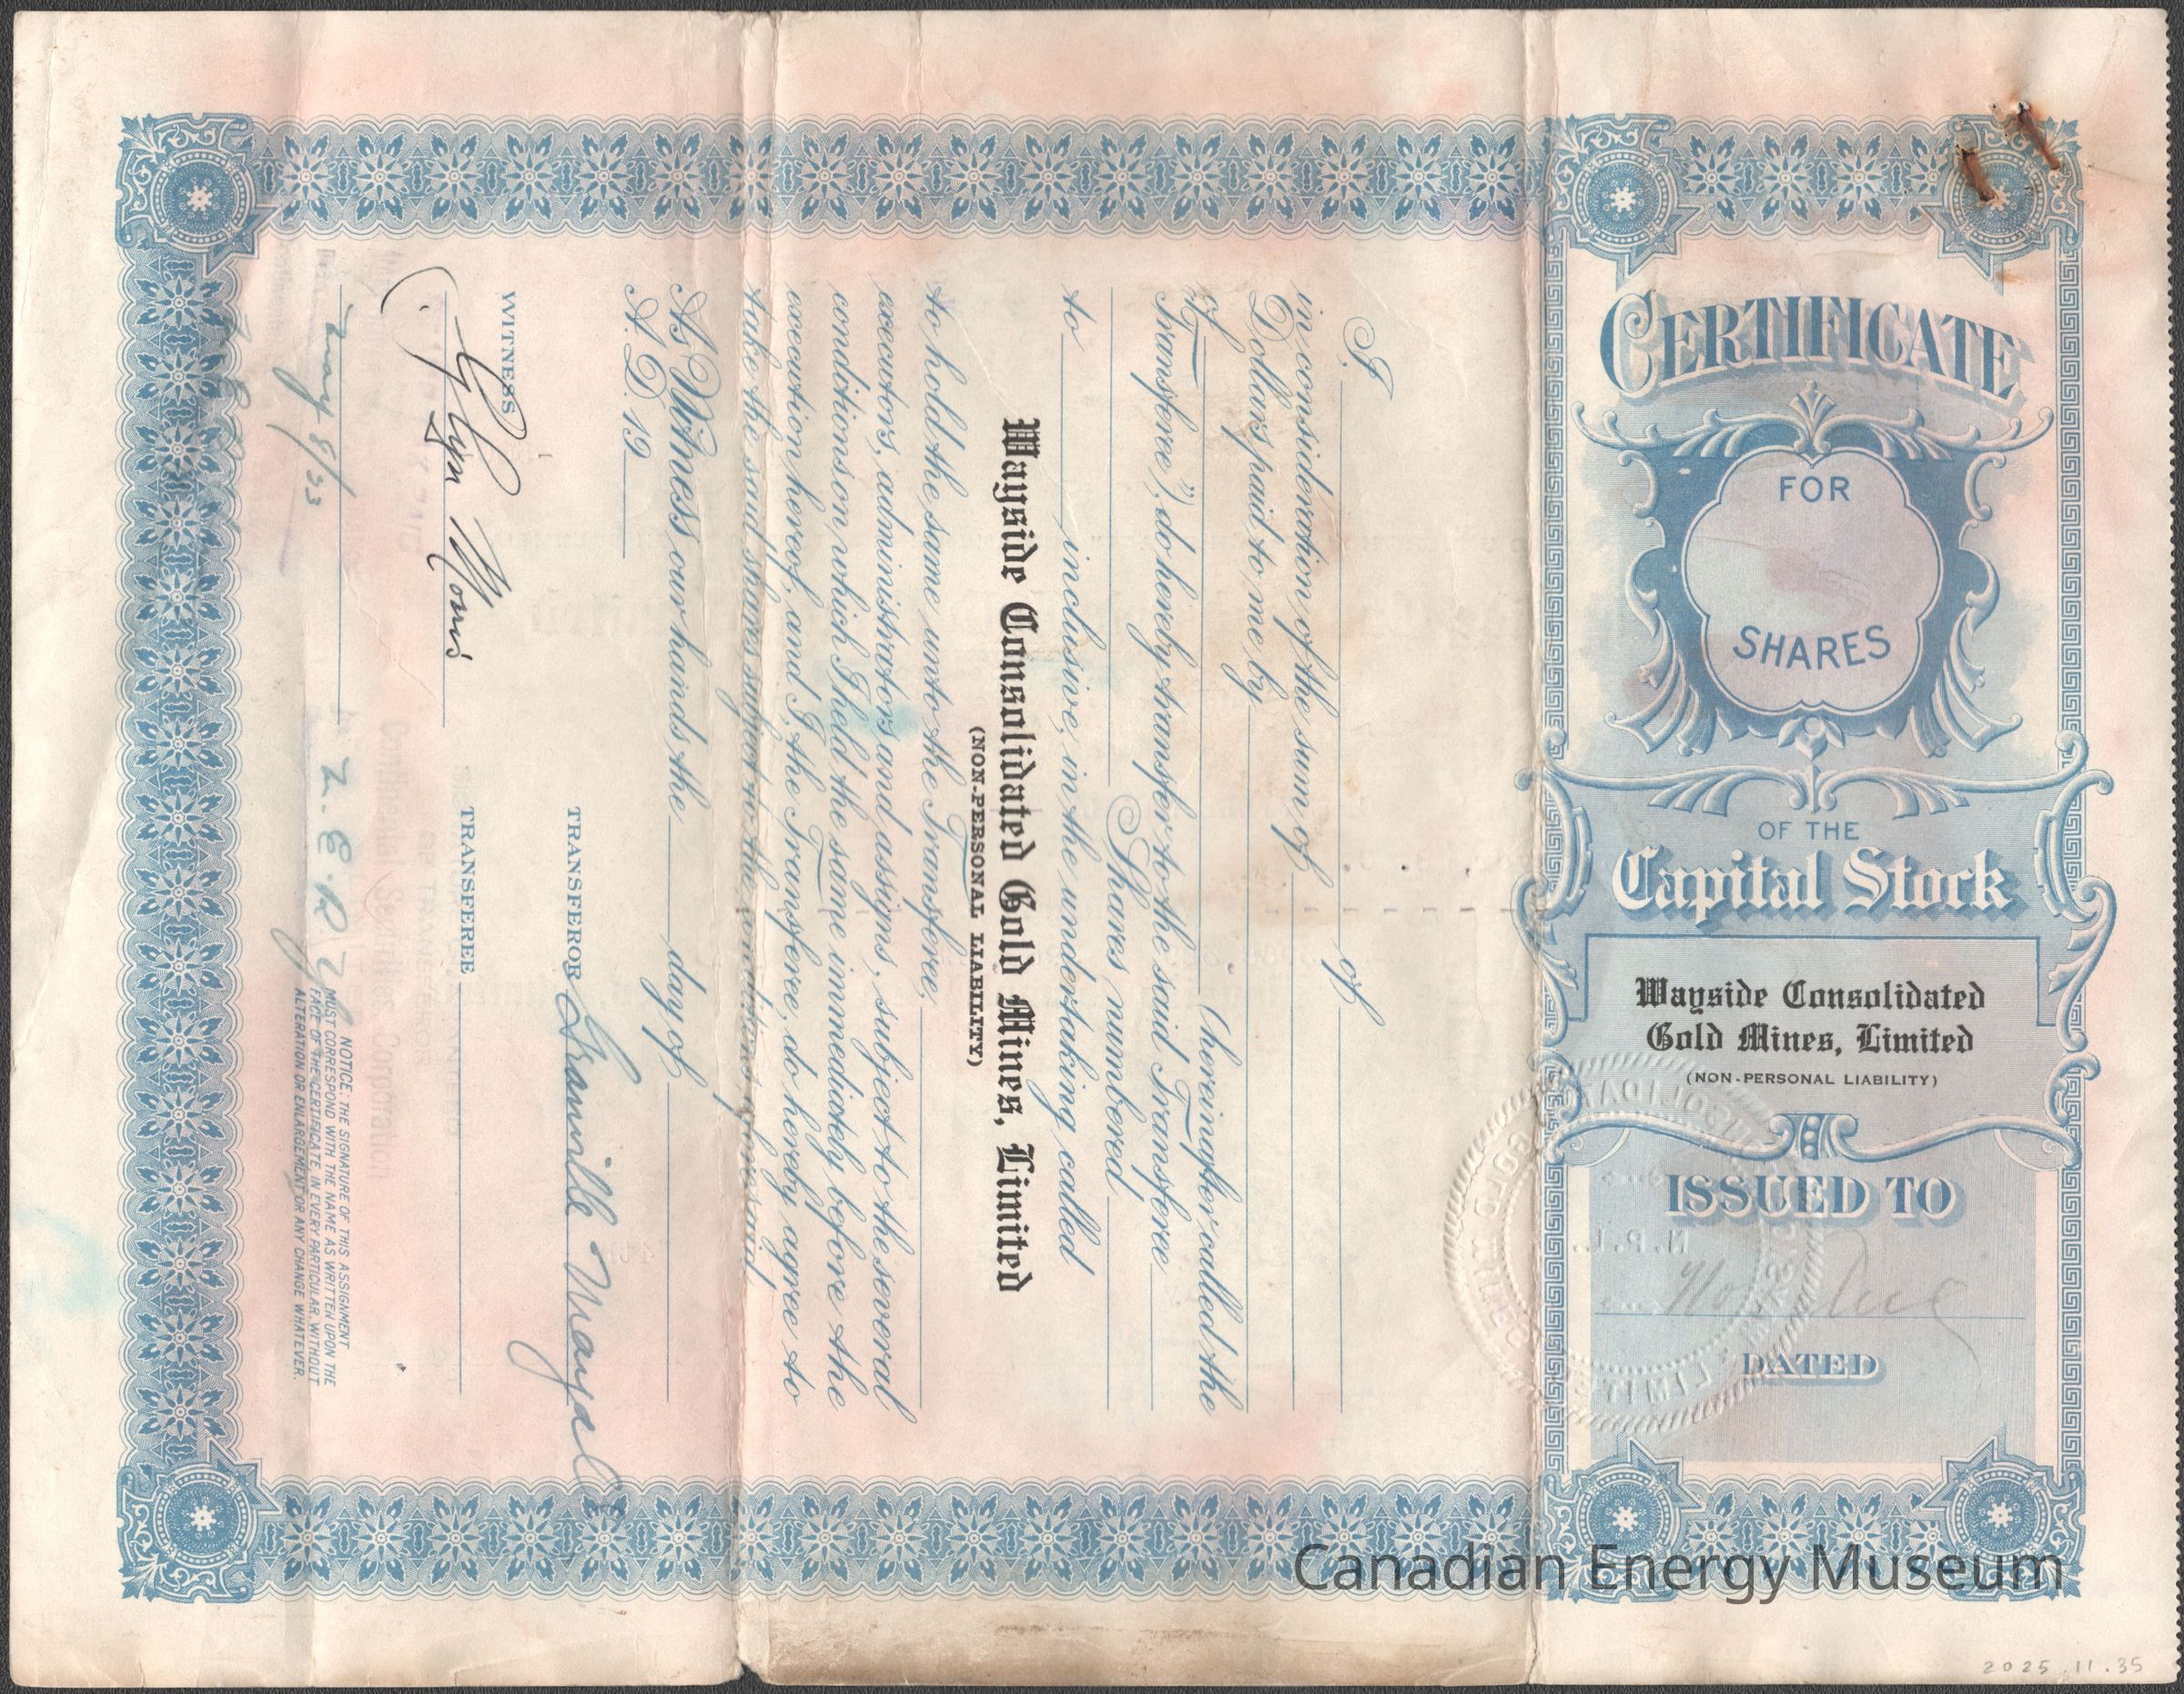 CERTIFICATE
FOR
SHARES
OF THE
Capital Stock
Wayside Consolidated
Gold Mines, Limited
(NON-PERSONAL LIABILITY)
ISSUED TO
N.P.L.
DATED
I, of
in consideration of the sum of
Dollars, paid to me by
of (hereinafter called the
Transferee"), do hereby transfer to the said Transferee
Shares numbered
to inclusive, in the undertaking called
Wayside Consolidated Gold Mines, Limited
(NON-PERSONAL LIABILITY)
to hold the same unto the Transferee,
executors, administrators and assigns, subject to the several
conditions on which I held the same immediately before the
execution hereof, and I, the Transferee, do hereby agree to
take the said shares subject to the conditions aforesaid.
As Witness our hands the day of
A. D. 19
WITNESS
TRANSFEROR Granville
TRANSFEREE
Glyn
May 8/33
Continental Securities Corporation
NOTICE: THE SIGNATURE OF THIS ASSIGNMENT
MUST CORRESPOND WITH THE NAME AS WRITTEN UPON THE
FACE OF THE CERTIFICATE, IN EVERY PARTICULAR, WITHOUT
ALTERATION OR ENLARGEMENT OR ANY CHANGE WHATEVER.
Canadian Energy Museum
2025.11.35